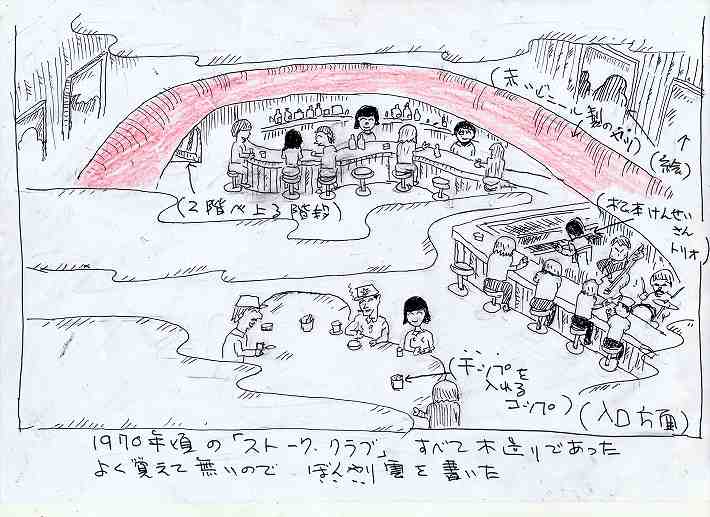 (赤いビニール製の
(絵)
(2階へ上る階段)
(松本けんせい
さん
トリオ)
(チップを
入れる
コップ)
(入口方面)
1970年頃の「ストーク.クラブ」 すべて木造りであった
よく覚えて無いので ぼんやり雲を書いた